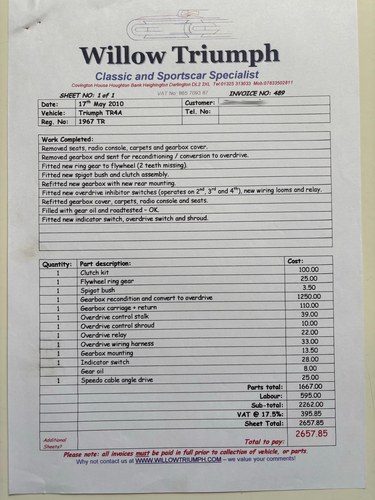 Willow Triumph
Classic and Sportscar Specialist
Coatington House Houghton Bank Heighington Darlington DL2 2XL Tel:01325 313032 Mob:07833502811
SHEET NO: 1 of 1 VAT No: INVOICE NO: 489
Date: 17th May 2010 Customer:
Vehicle: Triumph TR4A Tel. No:
Reg. No: 1967 TR
Work Completed:
Removed seats, radio console, carpets and gearbox cover.
Removed gearbox and sent for reconditioning / conversion to overdrive.
Fitted new ring gear to flywheel (2 teeth missing).
Fitted new spigot bush and clutch assembly.
Refitted new gearbox with new rear mounting.
Fitted new overdrive inhibitor switches (operates on 2nd, 3rd and 4th), new wiring looms and relay.
Refitted gearbox cover, carpets, radio console and seats.
Filled with gear oil and roadtested – OK.
Fitted new indicator switch, overdrive switch and shroud.
Quantity: Part description: Cost:
1 Clutch kit 100.00
1 Flywheel ring gear 25.00
1 Spigot bush 3.50
1 Gearbox recondition and convert to overdrive 1250.00
1 Gearbox carriage + return 110.00
1 Overdrive control stalk 39.00
1 Overdrive control shroud 10.00
1 Overdrive relay 22.00
1 Overdrive wiring harness 33.00
1 Gearbox mounting 13.50
1 Indicator switch 28.00
Gear oil 8.00
1 Speedo cable angle drive 25.00
Parts total: 1667.00
Labour: 595.00
Sub-total: 2262.00
VAT @ 17.5%: 395.85
Sheet Total: 2657.85
Additional Sheets? Total to pay: 2657.85
Please note: all invoices must be paid in full prior to collection of vehicle, or parts.
Why not contact us at WWW.WILLOWTRIUMPH.COM – we value your comments!